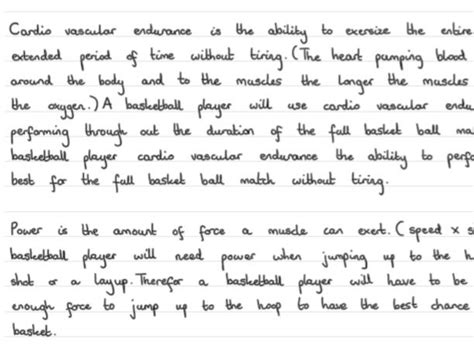 Cardio vascular endurance is the ability to exersize the entire
extended period of time without tiring. (The heart pumping blood
around the body and to the muscles the longer the muscles
the oxygen.) A basketball player will use cardio vascular endu
performing through out the duration of the full basket ball ma
basketball player cardio vascular endurance the ability to perfo
best for the full basket ball match without tiring.
Power is the amount of force a muscle can exert. (speed x s
basketball player will need power when jumping up to the h
shot or a layup. Therefor a basketball player will have to be
enough force to jump up to the hoop to have the best chance
basket.